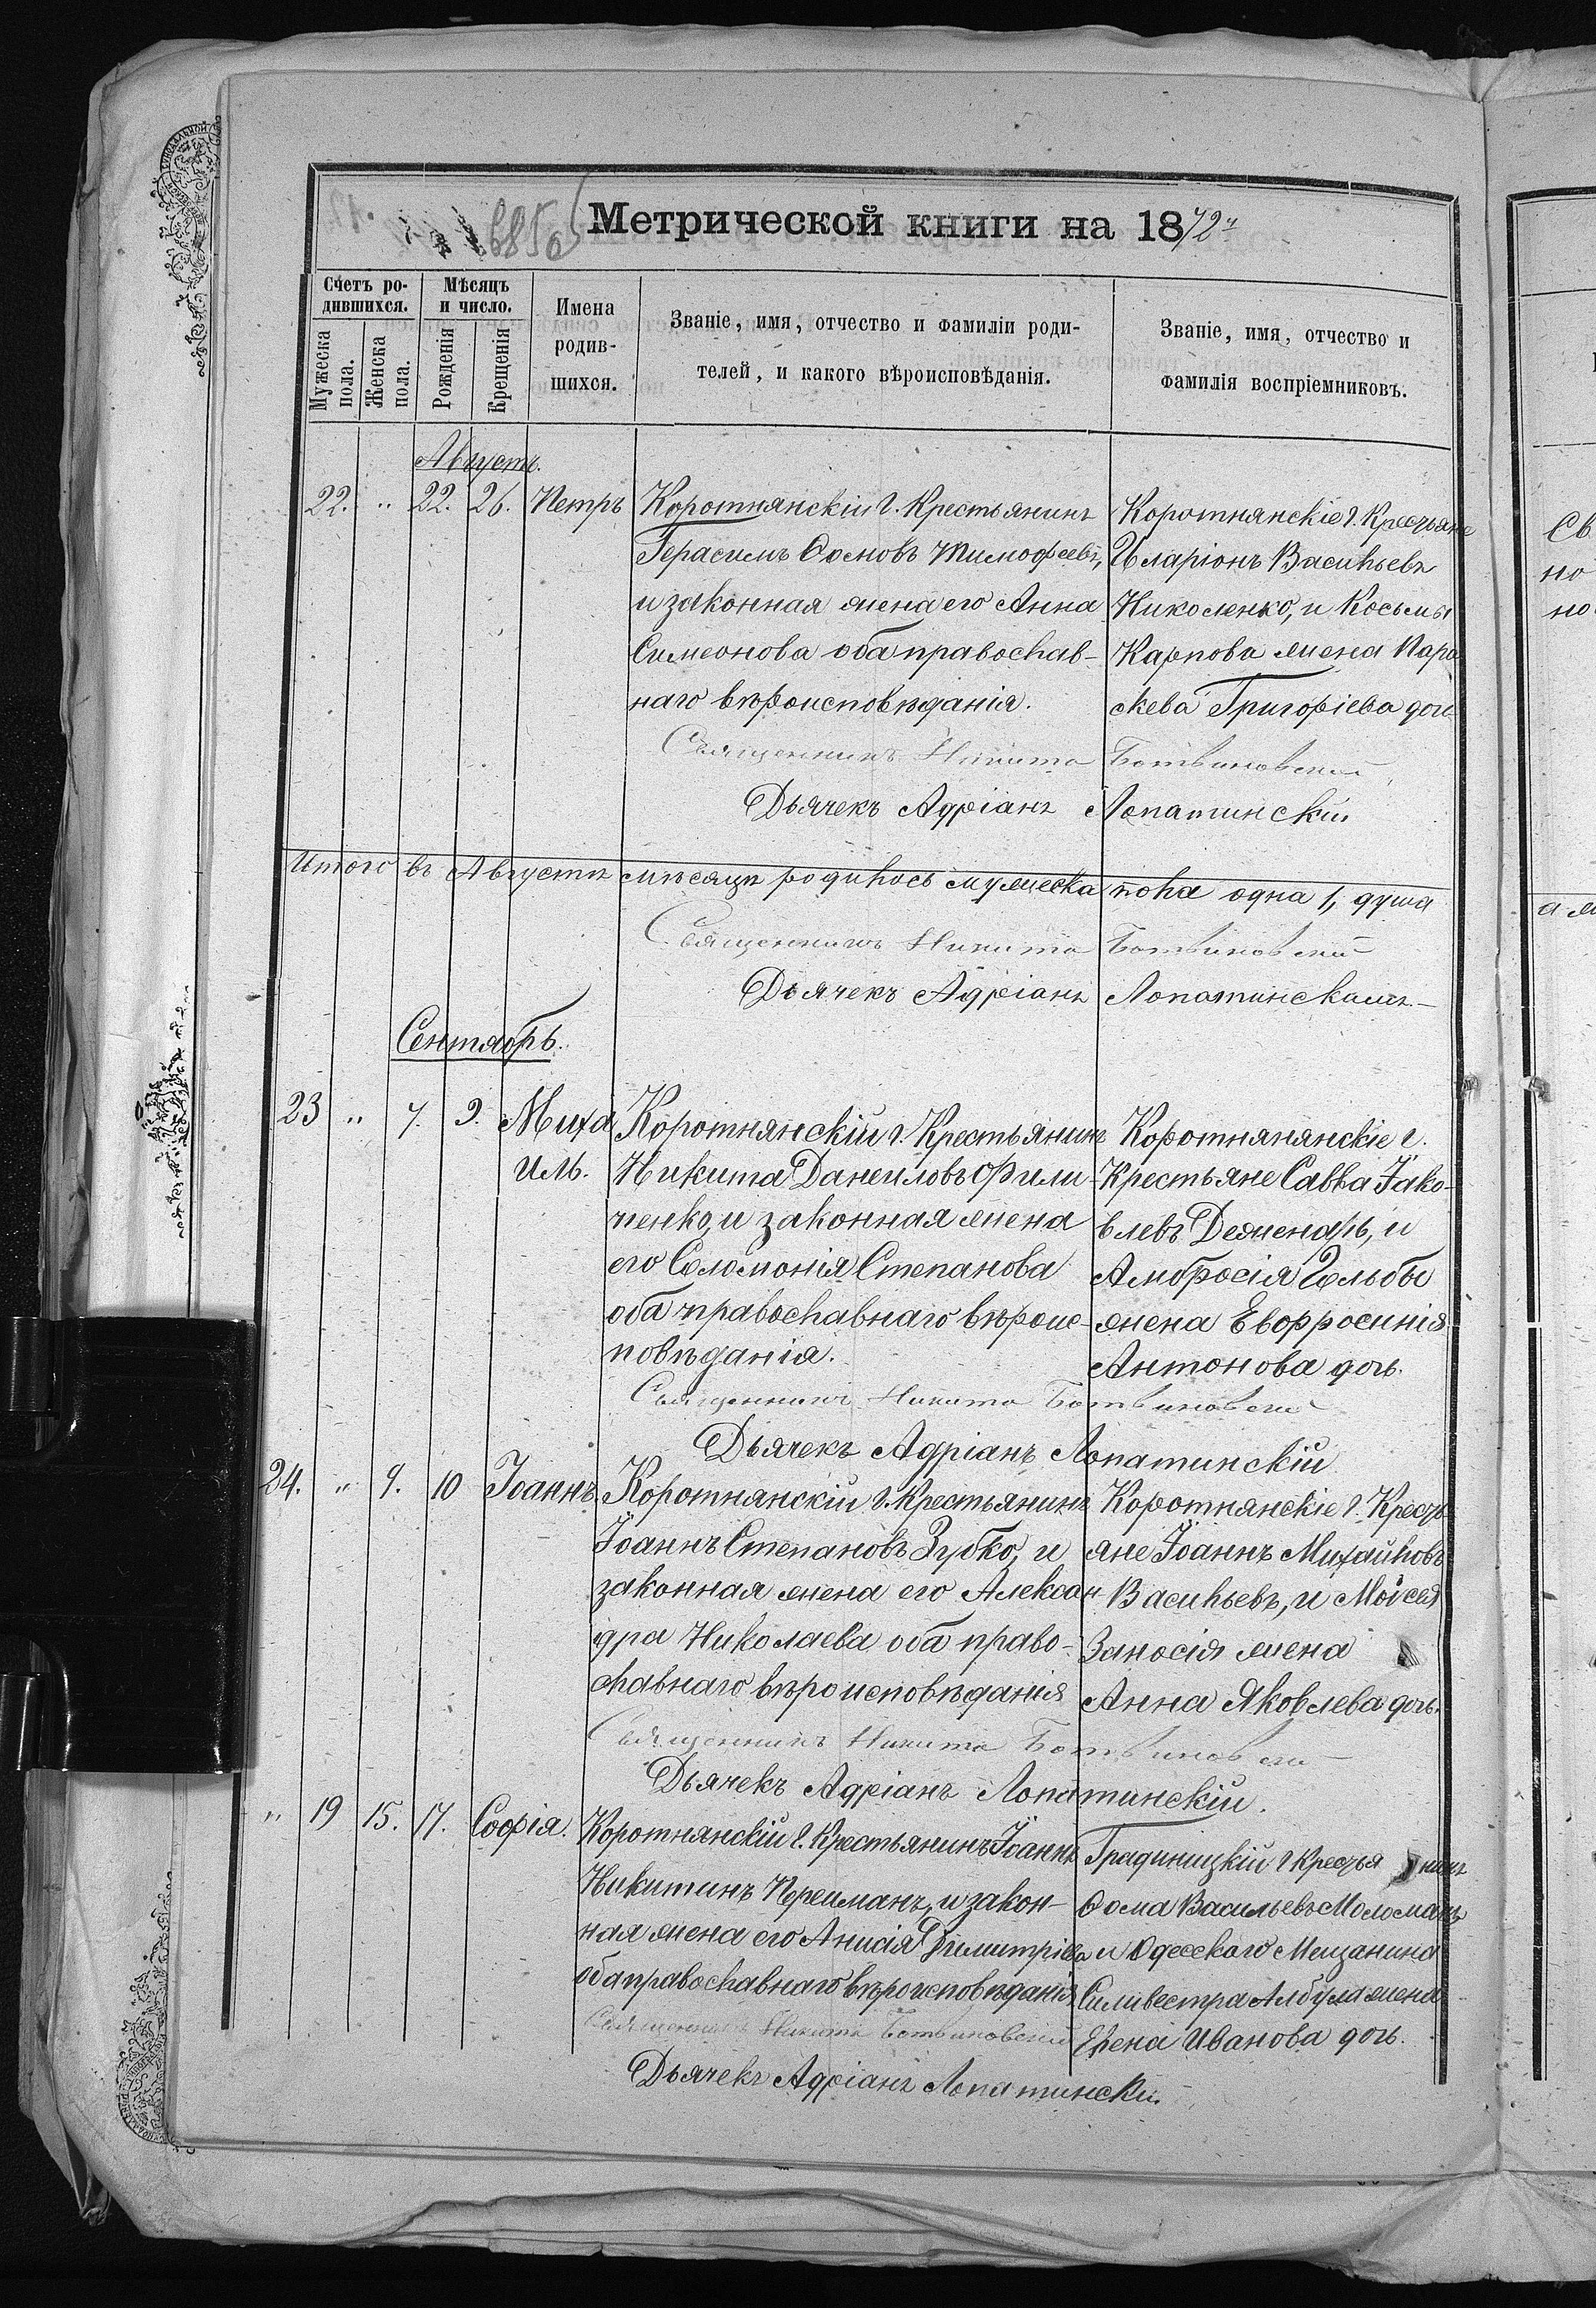 Метрической книги на 1872 г.
Счетъ родившихся.
Мужеска пола.
Женска пола.
Мѣсяцъ и число.
Рожденія
Крещенія
Имена родившихся.
Званіе, имя, отчество и фамиліи роди-
телей, и какого вѣроисповѣданія.
Званіе, имя, отчество и
фамилія воспріемниковъ.
Августъ.
22. " 22. 26. Петръ
Коротнянскій г. Крестьянинъ
Герасимъ Ѳомовъ Тимофеевъ,
и законная жена его Анна
Симеонова оба православ-
наго вѣроисповѣданія.
Коротнянскіе г. Крестьяне
Иларіонъ Васильевъ
Николенко, и Косьмы
Карпова жена Пара
скева Григоріева дочь
Священникъ Никита Ботвиновскій
Дьячекъ Адріанъ Лопатинскій
Итого въ Августѣ мѣсяцѣ родилось мужеска пола одна 1, душа
Священникъ Никита Ботвиновскій
Дьячекъ Адріанъ Лопатинскій
Сентябрь.
23 " 7. 9. Миха
илъ.
Коротнянскій г. Крестьянинъ
Никита Данеиловъ Фили-
пенко, и законная жена
его Соломонія Степанова
оба православнаго вѣроис-
повѣданія.
Коротнянянскіе г.
Крестьяне Савва Іако-
влевъ Деженарь, и
Амбросія Гольбы
жена Евфросинія
Антонова дочь.
Священникъ Никита Ботвиновскій
Дьячекъ Адріанъ Лопатинскій
24. " 9. 10 Іоаннъ.
Коротнянскій г. Крестьянинъ
Іоаннъ Степановъ Зубко, и
законная жена его Алексан
дра Николаева оба право-
славнаго вѣроисповѣданія
Коротнянскіе г. Кресть
яне Іоаннъ Михайловъ
Васильевъ, и Мойсея
Заносія жена
Анна Яковлева дочь.
Священникъ Никита Ботвиновскій
Дьячекъ Адріанъ Лопатинскій.
" 19 15. 17. Софія.
Коротнянскій г. Крестьянинъ Іоаннъ
Никитинъ Переиманъ, и закон-
ная жена его Анисія Димитріева
оба православнаго вѣроисповѣданія
Градиницкій г Крестьянинъ
Ѳома Васильевъ Моломанъ
и Одесскаго Мещанина
Силивестра Албула жена
Елена Иванова дочь.
Священникъ Никита Ботвиновскій
Дьячекъ Адріанъ Лопатинскій